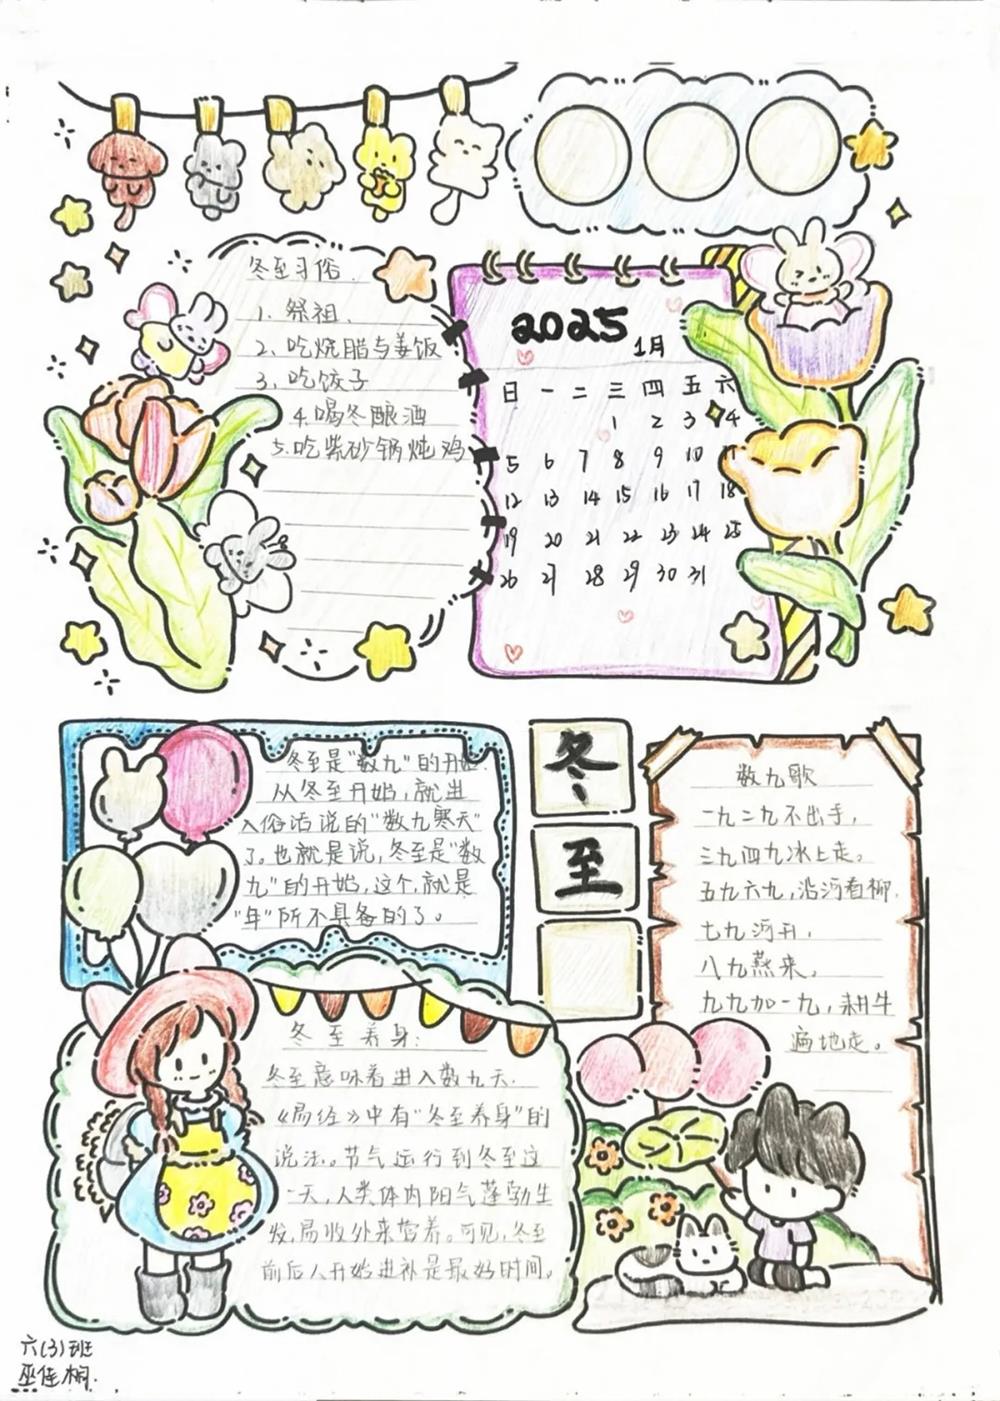 冬至习俗.
1. 祭祖、
2、吃烧腊与姜饭
3、吃饺子
4.喝冬酿酒
5.吃紫砂锅炖鸡
2025
1月
日 一 二 三 四 五 六
1 2 3 4
5 6 7 8 9 10 11
12 13 14 15 16 17 18
19 20 21 22 23 24 25
26 27 28 29 30 31
冬至是"数九"的开始.
从冬至开始,就进
入俗话说的"数九寒天"
了。也就是说,冬至是"数
九"的开始,这个,就是
"年"所不具备的了。
冬
至
数九歌
一九二九不出手,
三九四九冰上走。
五九六九,沿河看柳.
七九河开,
八九燕来,
九九加一九,耕牛
遍地走。
冬至养身:
冬至意味着进入数九天.
《易经》中有"冬至养身"的
说法。节气运行到冬至这
一天,人类体内阳气蓬勃生
发,易收外来营养。可见,冬至
前后人开始进补是最好时间。
六(3)班
巫佳桐.